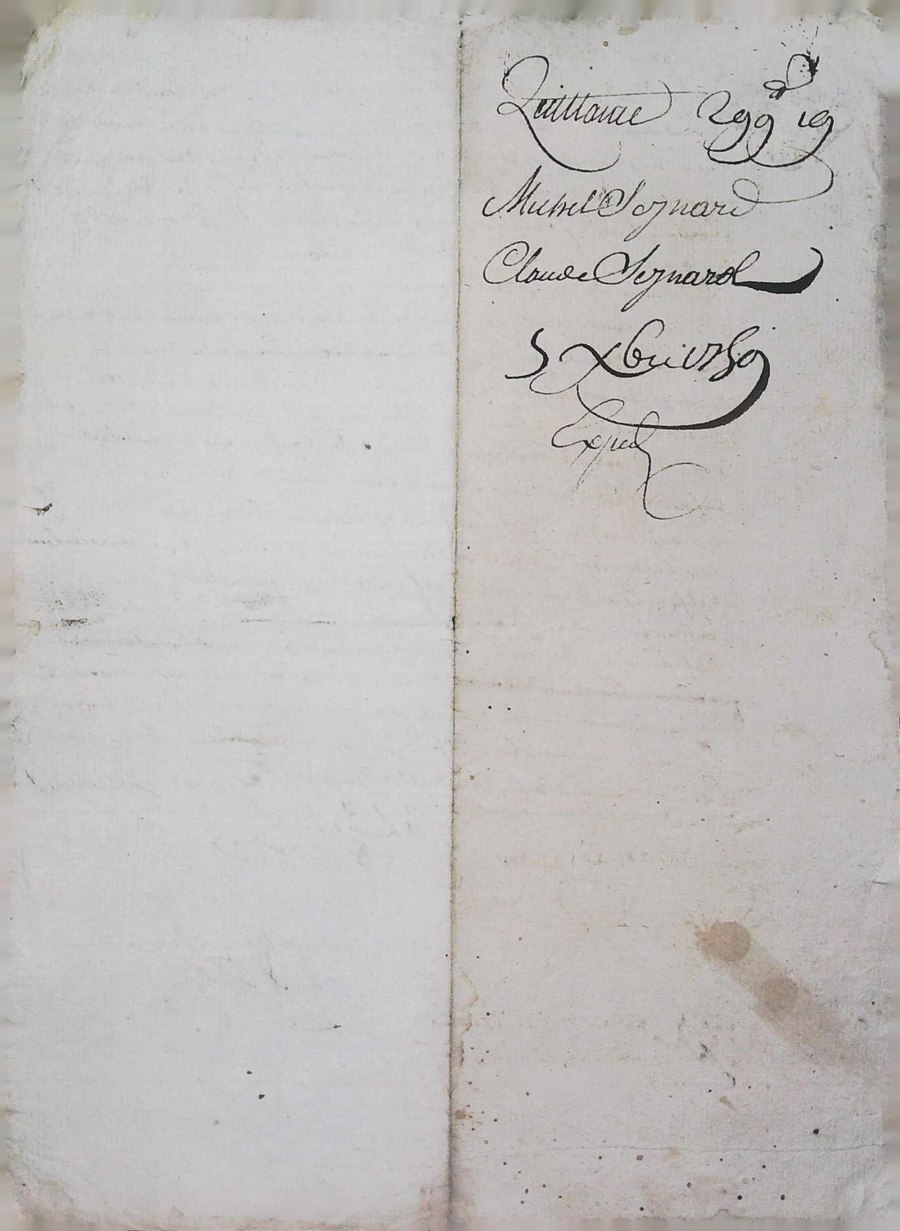 Quittance 299# 19
Michel Seynard
Claude Seynard
5 xbre 1789
Exped